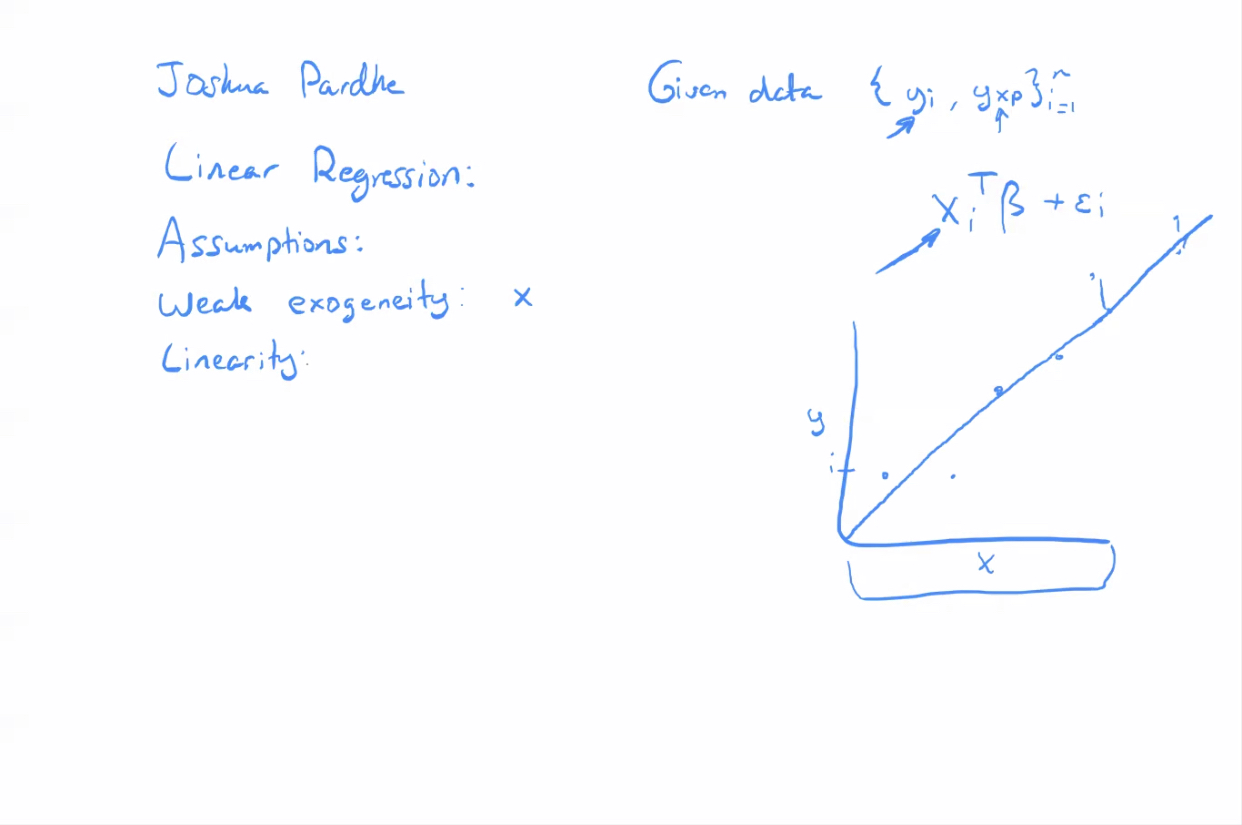 Joshua Pardhe
Linear Regression:
Assumptions:
Weak exogeneity: x
Linearity:
Given data { yi , yxp }ⁿi=1
xiᵀβ + εi
y
i
x